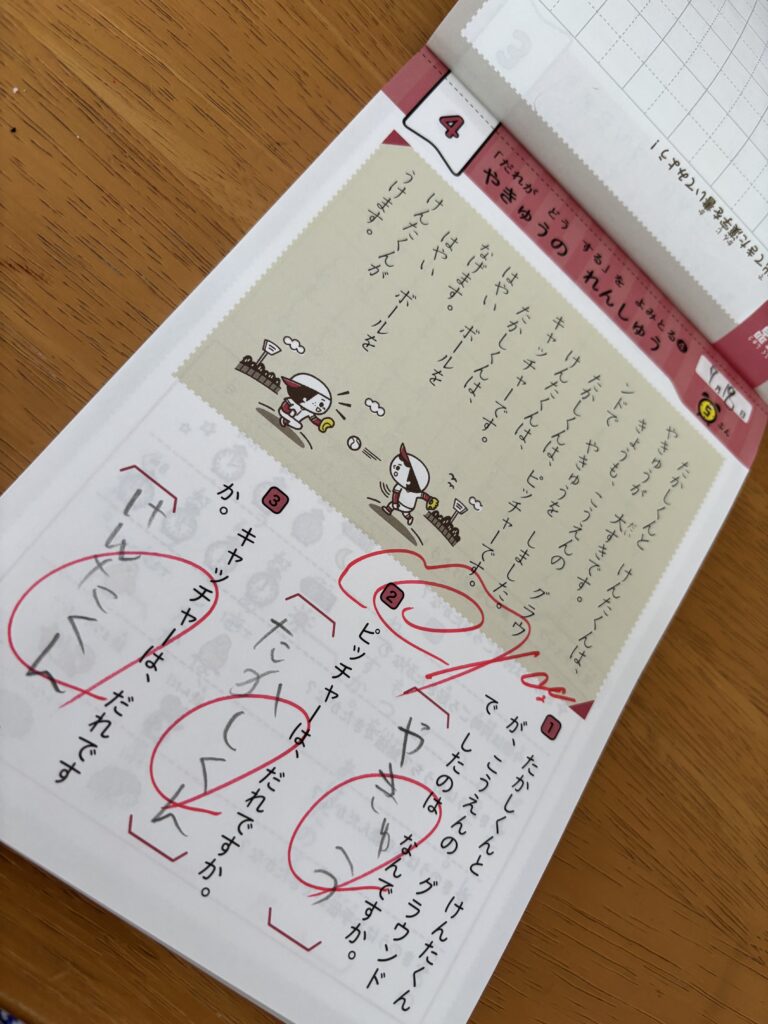 4
「だれが どう する」を よみとる❺
やきゅうの れんしゅう
5
ふん
たかしくんと けんたくんは、
やきゅうが 大すきです。
だい
きょうも、こうえんの グラウ
ンドで やきゅうを しました。
たかしくんは、ピッチャーです。
けんたくんは、
キャッチャーです。
たかしくんは、
はやい ボールを
なげます。
けんたくんが
はやい ボールを
うけます。
1
たかしくんと けんたくん
が、こうえんの グラウンド
で したのは なんですか。
やきゅう
2
ピッチャーは、だれですか。
たかしくん
3
キャッチャーは、だれです
か。
けんたくん